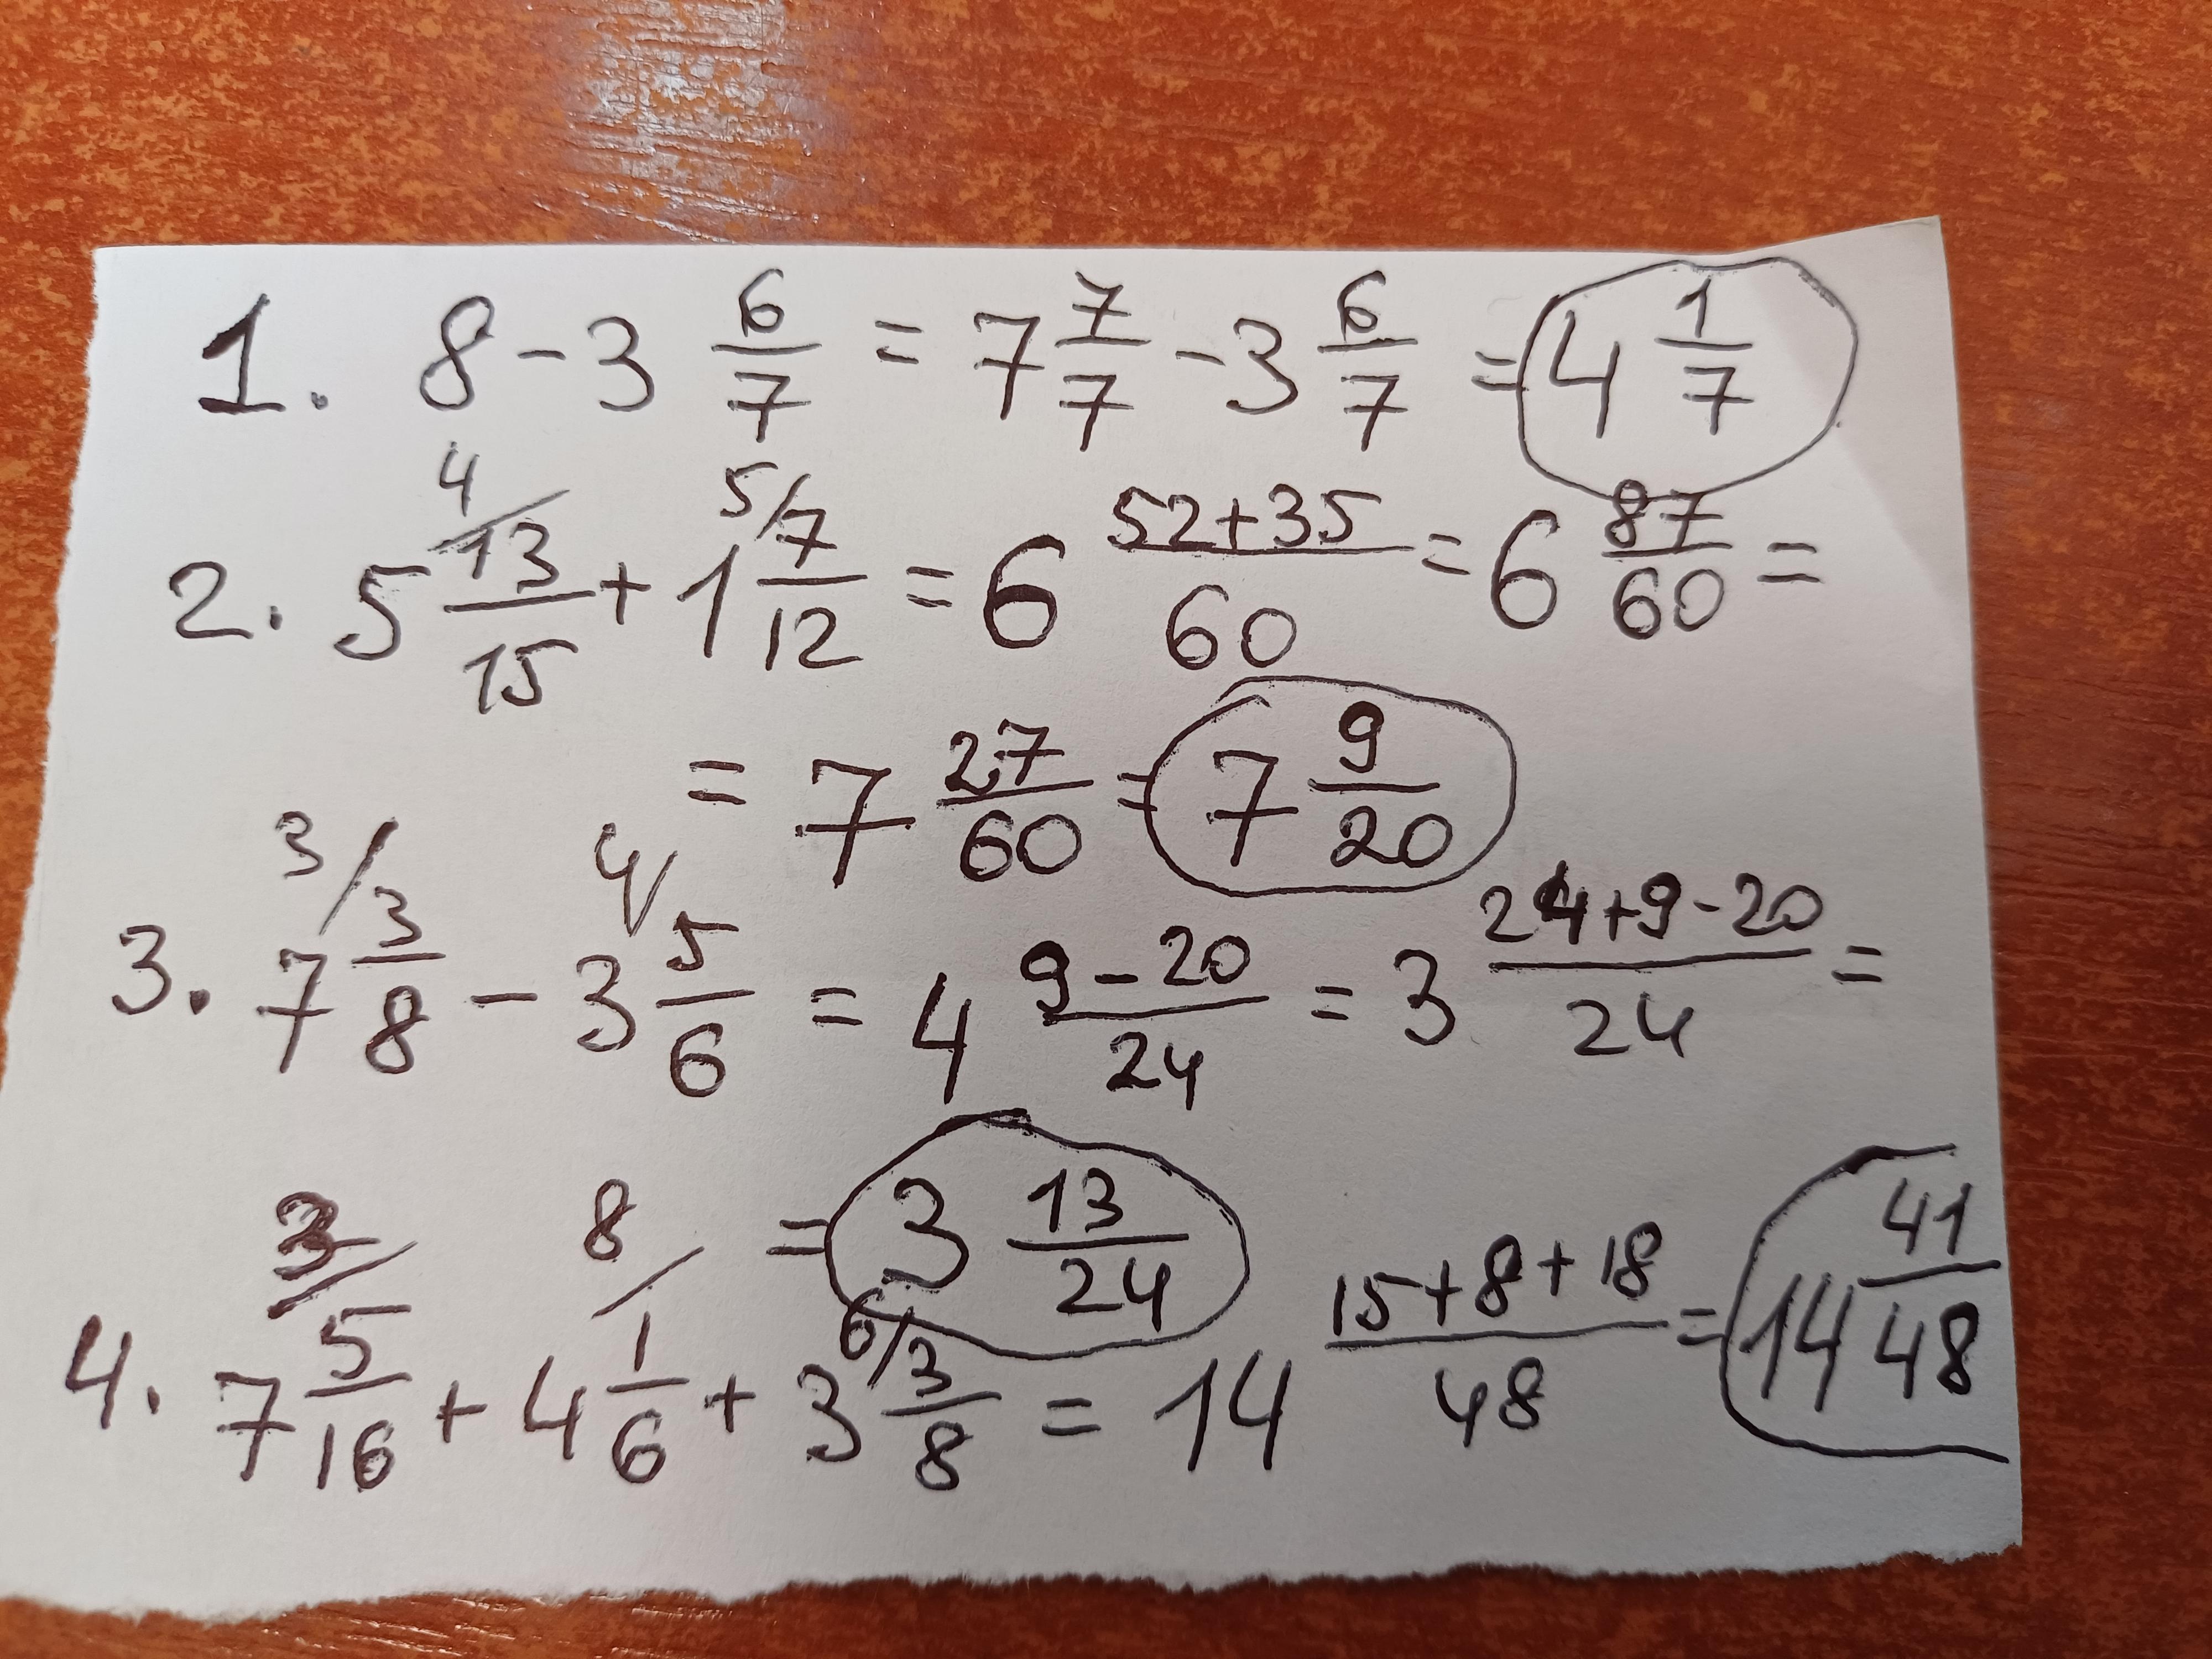 1. 8 - 3 6/7 = 7 7/7 - 3 6/7 = 4 1/7
2. 5 4/ 13/15 + 1 5/ 7/12 = 6 52+35/60 = 6 87/60 =
= 7 27/60 = 7 9/20
3. 7 3/ 3/8 - 3 4/ 5/6 = 4 9-20/24 = 3 24+9-20/24 =
= 3 13/24
4. 7 3/ 5/16 + 4 8/ 1/6 + 3 6/ 3/8 = 14 15+8+18/48 = 14 41/48